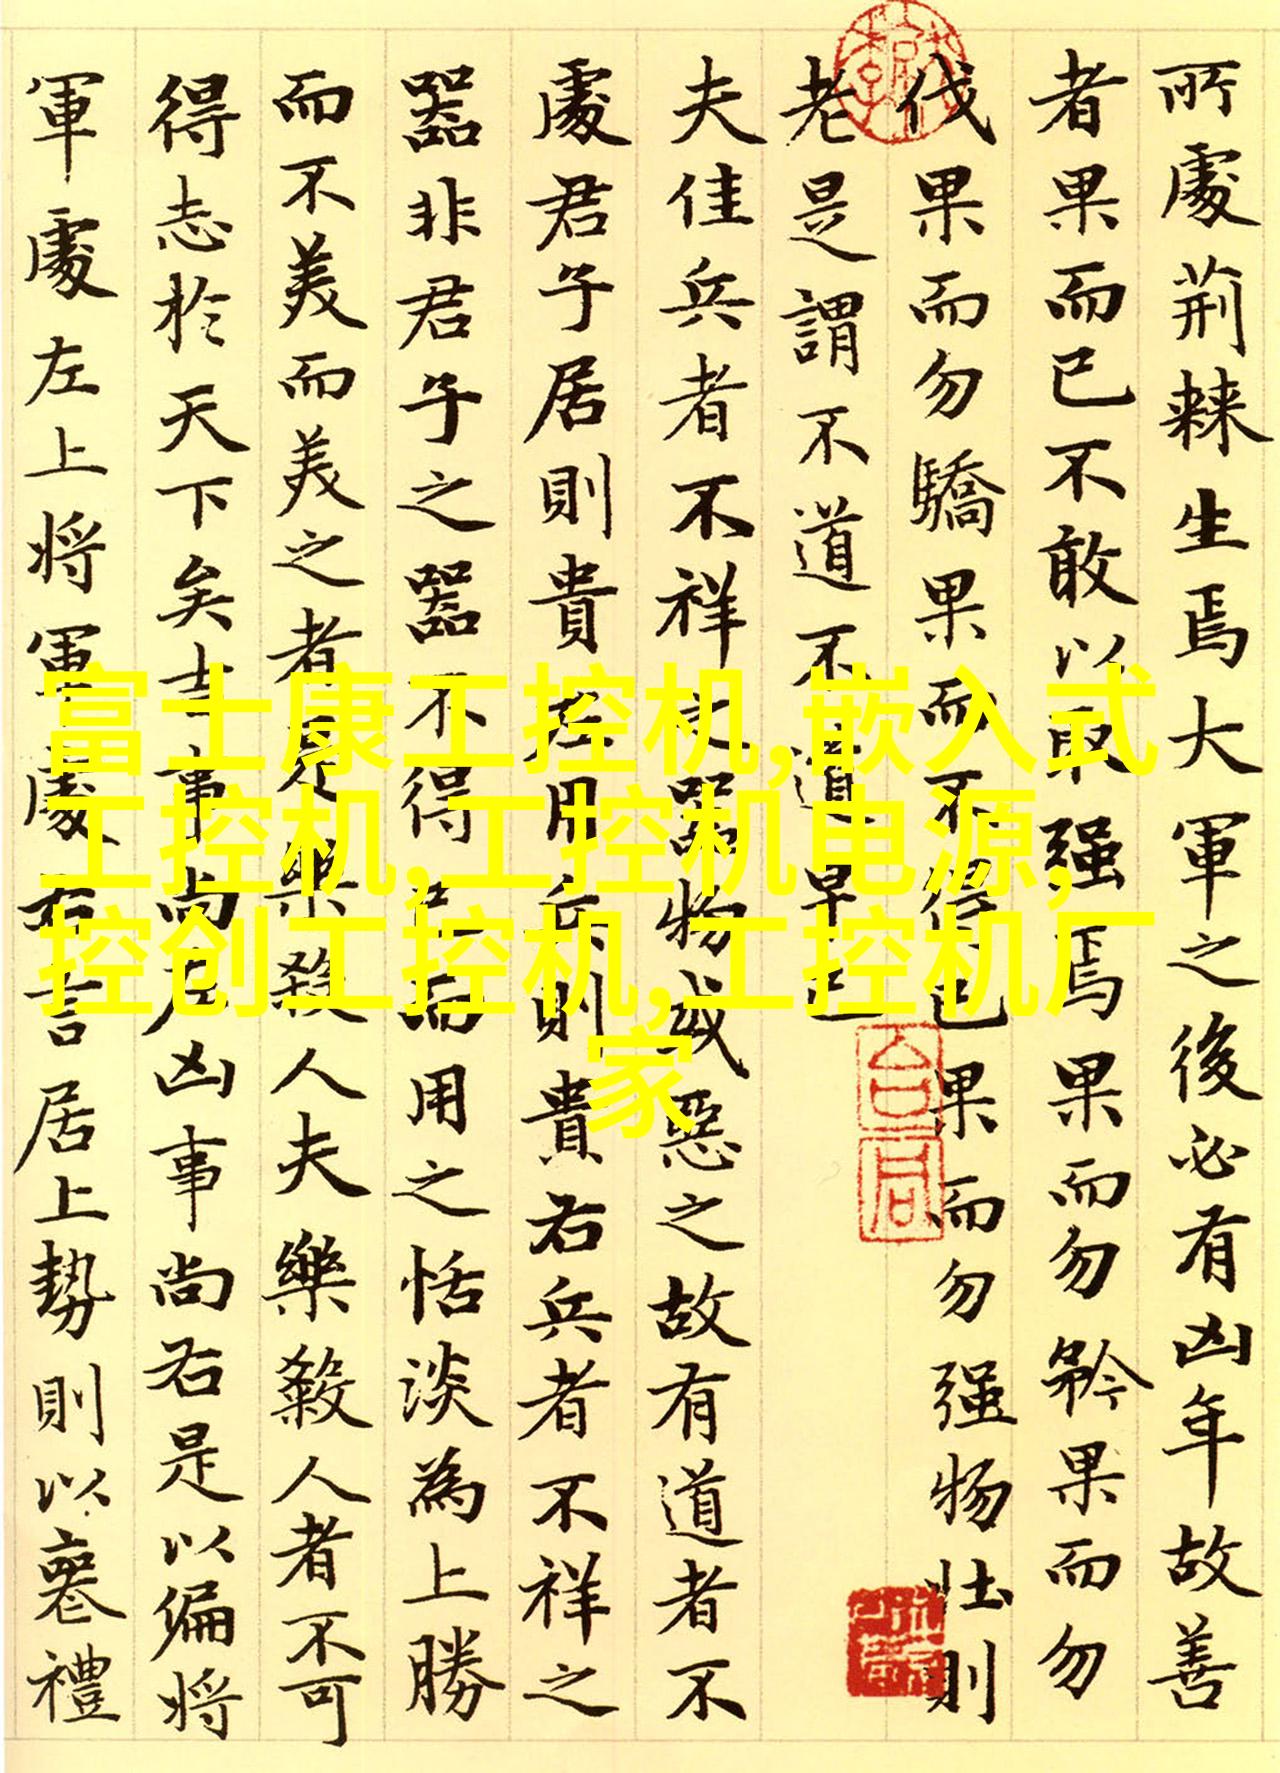 所處荊棘生焉大軍之後必有凶年故善
者果而已不敢以取强焉果而勿矜果而勿
伐果而勿驕果而不得已果而勿强物壮則
老是謂不道不道早已
夫佳兵者不祥之器物或惡之故有道者不
處君子居則貴左用兵則貴右兵者不祥之
器非君子之器不得已而用之恬淡為上勝
而不美而美之者是樂殺人夫樂殺人者不可
得志於天下矣吉事尚左凶事尚右是以偏將
軍處左上將軍處右言居上勢則以喪禮
富士康工控机,嵌入式
工控机,工控机电源,
控创工控机,工控机厂
家